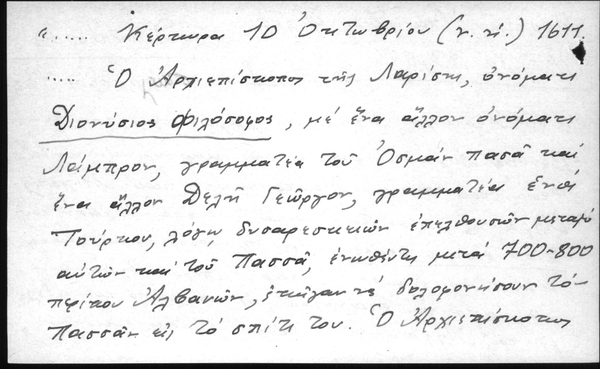 « ..... Κέρκυρα 10 Ὀκτωβρίου (ν. ἡ.) 1611.
..... Ὁ Ἀρχιεπίσκοπος τῆς Λαρίσης, ὀνόματι
Διονύσιος Φιλόσοφος, μέ ἕνα ἄλλον ὀνόματι
Λάμπρον, γραμματέα τοῦ Ὀσμάν πασᾶ καί
ἕνα ἄλλον Δελῆ Γεώργον, γραμματέα ἑνός
Τούρκου, λόγῳ δυσαρεσκειῶν ἐπελθουσῶν μεταξύ
αὐτῶν καί τοῦ Πασσᾶ, ἑνωθέντες μετά 700-800
περίπου Ἀλβανῶν, νά δολοφονήσουν τόν
Πασσᾶν εἰς τό σπίτι του. Ὁ Ἀρχιεπίσκοπος